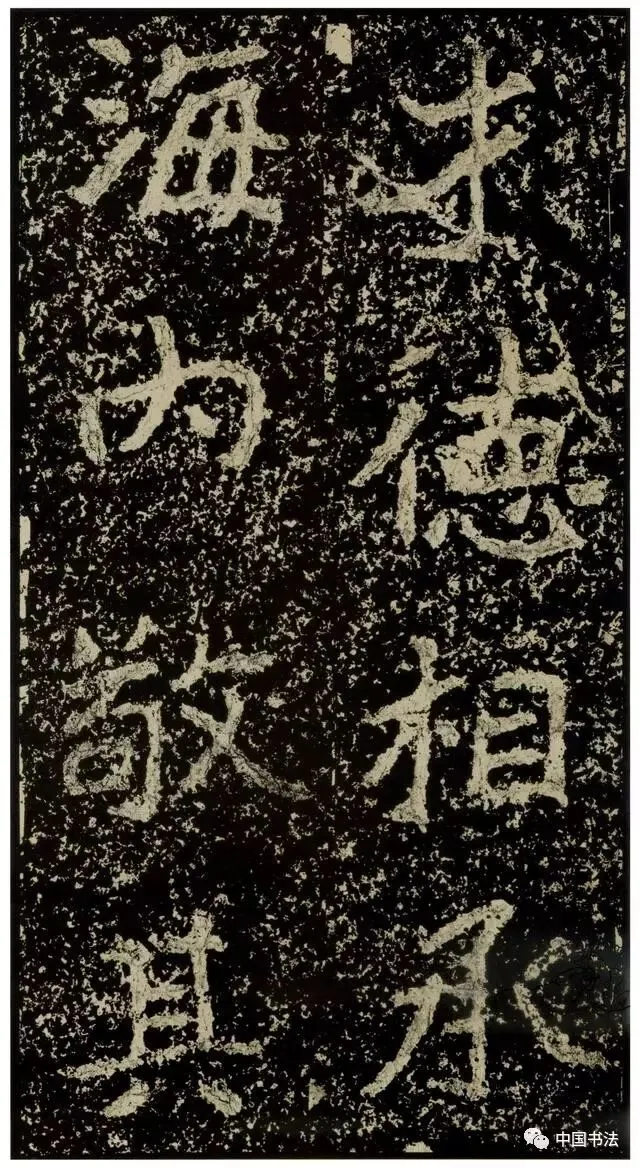 才德相承
海内敬其
中国书法